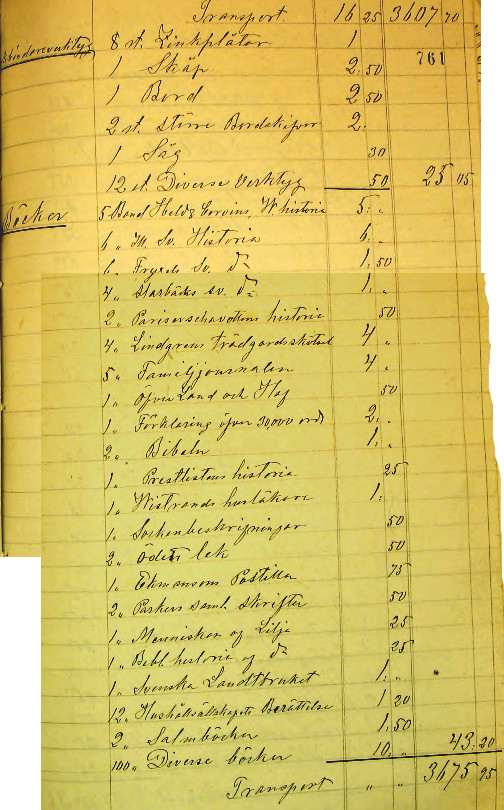 Transport 16 25 3607 70
Snickareverktyg 8 st. Zinkplåtar 1
761
1 Skåp 2. 50
1 Bord 2 50
2 st. större Bordskifvor 2.
1 Såg 30
12 st. Diverse Verktyg 50 25 05
Böcker 5 Band Held & Corvins, W. historia 5. "
6 " Ill. Sv. Historia 6. "
6 " Fryxels Sv. d:o 1. 50
4 " Starbäcks sv. d:o 1. "
2 " Pariserschavottens historia 50
4 " Lindgrens trädgårdsskötsel 4 "
5 " Familjjournalen 4 "
1 " Öfver Land och Haf 50
1 " Förklaring öfver 30,000 ord 2. "
2 " Bibeln 1. "
1 " Prestlistans historia 25
1 " Wistrands husläkare 1.
1 " Sockenbeskrifningar 50
2 " Ödets lek 50
1 " Ekmansons Postilla 75
2 " Parkers saml. skrifter 50
1 " Menniskan af Lilja 25
1 " Bibl. historia af d:o 25
1 " Svenska Landtbruket 1. "
12 " Hushållsällskapets Berättelse 1 20
2 " Salmböcker 1. 50
100 " Diverse böcker 10. " 43. 20
Transport " " 3675 95